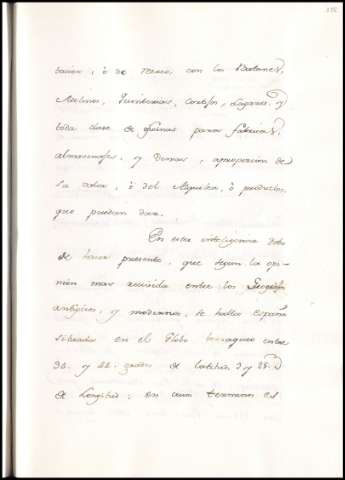 tacion, ò de recreo, con los Batanes,
Molinos, Tintorerias, Cortijos, Lagares y
toda clase de oficinas para fabricas,
almacenages, y demas, apropiacion de
la Casa, ò del Alquiler, ò productos,
que puedan dar.
En esta inteligencia debo
de hacer presente, que segun la opi-
nion mas recivida entre los
antiguos, y modernos, se halla España
situada en el Globo terraqueo entre
36 y 44 grados de latitud, y
de Longitud: en cuios terminos es